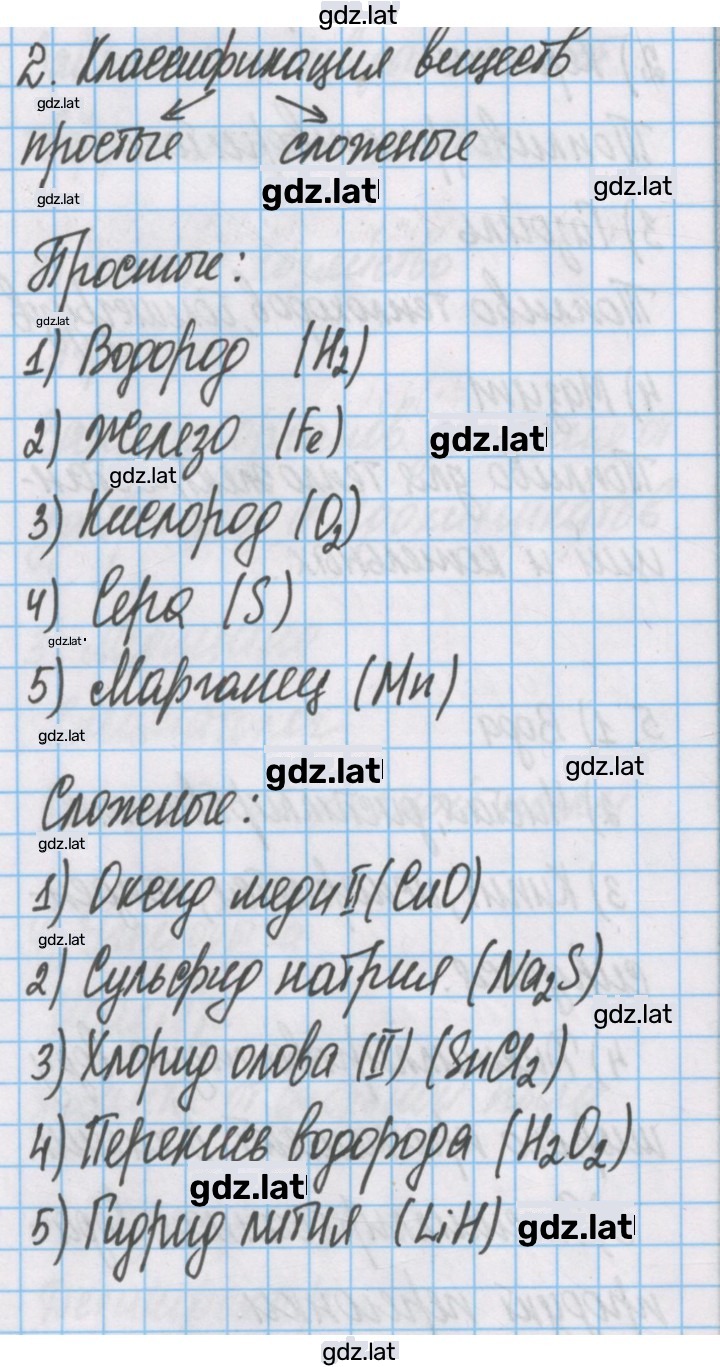 gdz.lat
2. Классификация веществ
gdz.lat
простые сложеные
gdz.lat gdz.lat gdz.lat
Простые:
gdz.lat
1) Водород (H₂)
2) Железо (Fe)
gdz.lat
gdz.lat
3) Кислород (O₂)
4) Сера (S)
gdz.lat
5) Марганец (Mn)
gdz.lat
gdz.lat gdz.lat
Сложеные:
gdz.lat
1) Оксид меди II (CuO)
gdz.lat
2) Сульфид натрия (Na₂S)
gdz.lat
3) Хлорид олова (II) (SnCl₂)
4) Перекись водорода (H₂O₂)
gdz.lat
5) Гидрид лития (LiH) gdz.lat
gdz.lat